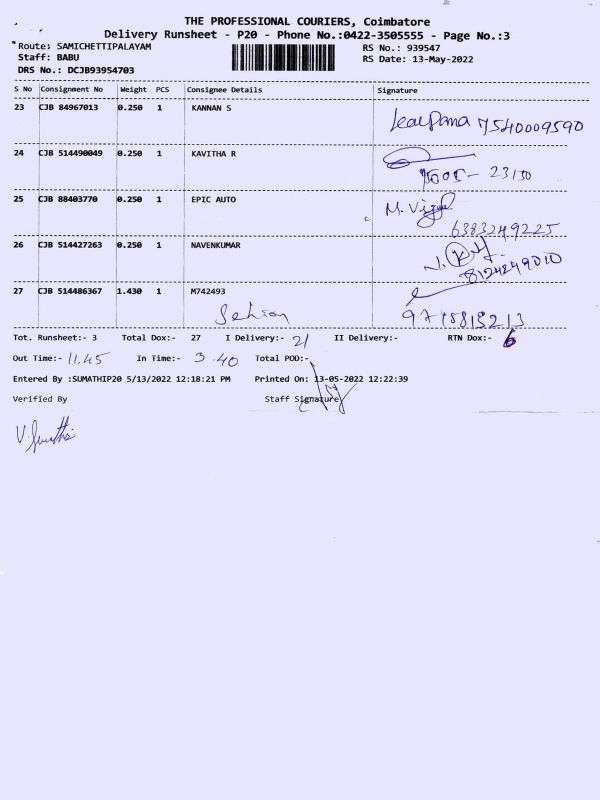 THE PROFESSIONAL COURIERS, Coimbatore
Delivery Runsheet - P20 - Phone No.:0422-3505555 - Page No.:3
Route: SAMICHETTIPALAYAM RS No.: 939547
Staff: BABU RS Date: 13-May-2022
DRS No.: DCJB93954703
S No Consignment No Weight PCS Consignee Details Signature
23 CJB 84967013 0.250 1 KANNAN S
7540009590
24 CJB 514490049 0.250 1 KAVITHA R
25 CJB 88403770 0.250 1 EPIC AUTO
6383249225
26 CJB 514427263 0.250 1 NAVENKUMAR
8124249010
27 CJB 514486367 1.430 1 M742493
9715815213
Tot. Runsheet:- 3 Total Dox:- 27 I Delivery:- 21 II Delivery:- RTN Dox:- 6
Out Time:- 11.45 In Time:- 3.40 Total POD:-
Entered By :SUMATHIP20 5/13/2022 12:18:21 PM Printed On: 13-05-2022 12:22:39
Verified By Staff Signature